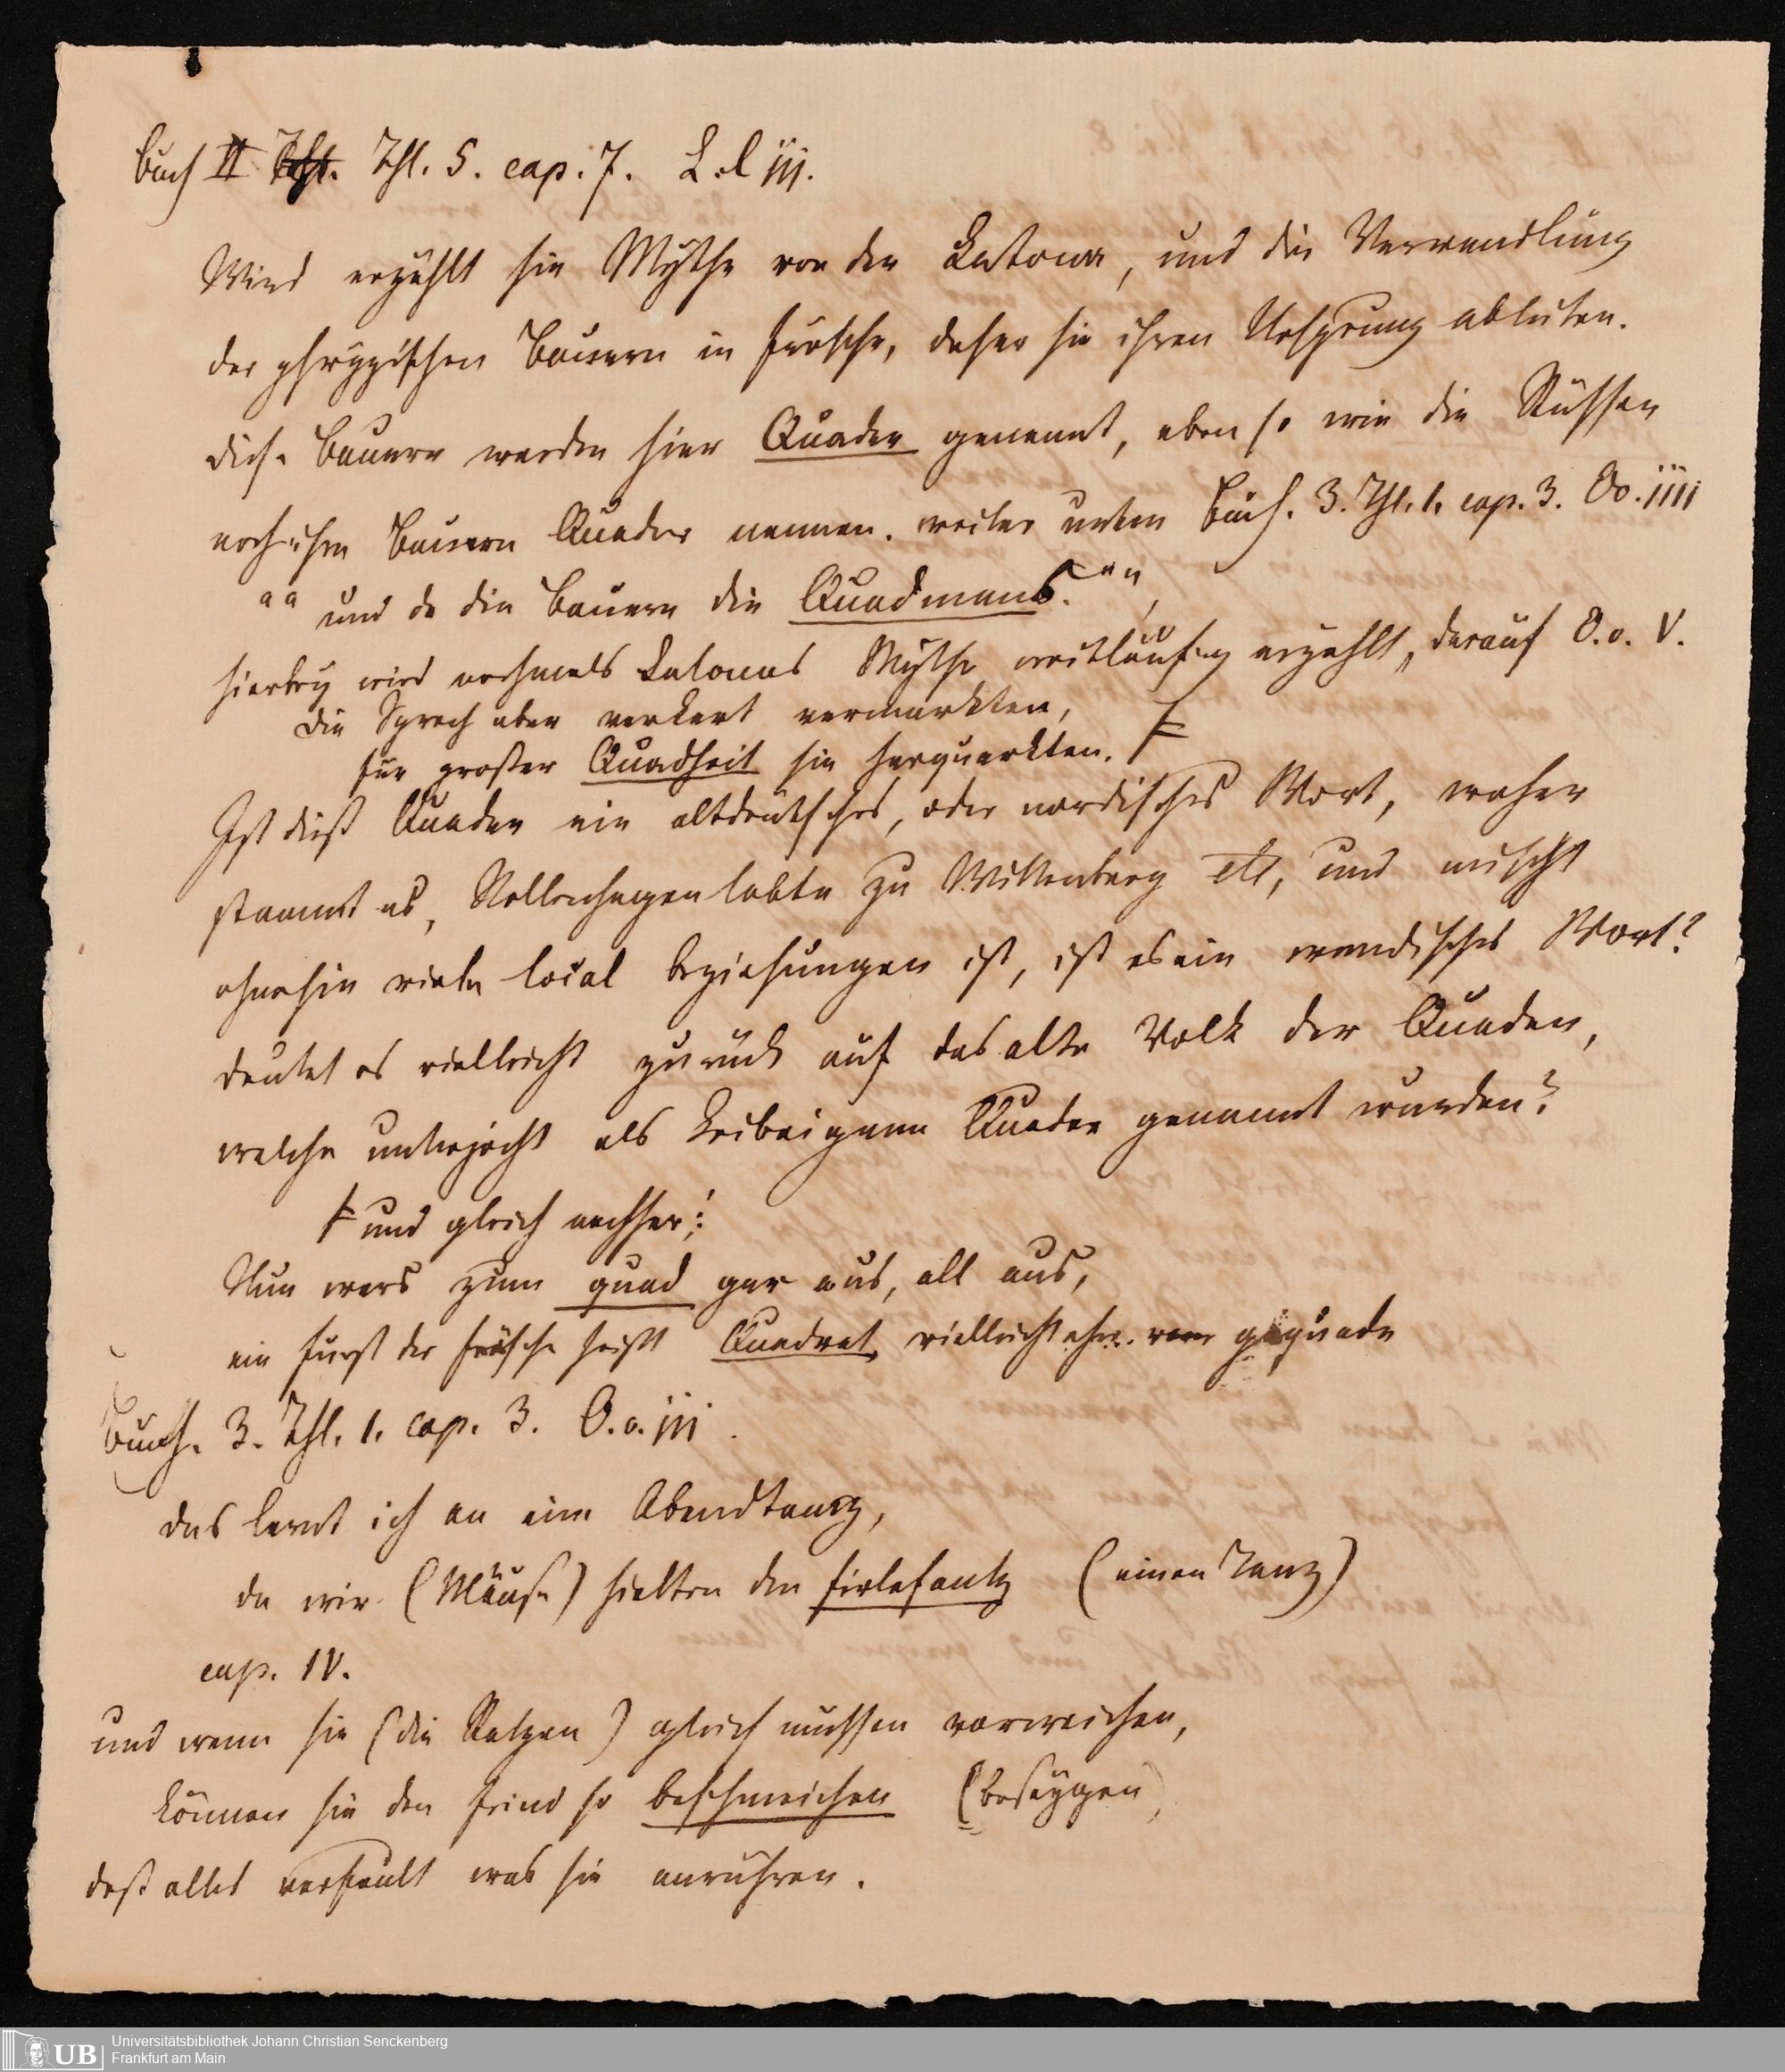 Buch II Thl. 5. cap. 7. L.l iij.
Wird erzählt hie Mythe von der Latona, und die Verwandlung
der phrygischen Bauern in Frösche, daher sie ihren Ursprung ableiten.
dies. Bauern werden hier Quaden genennt, eben so wie die Russen
noch ihre Bauern Quader nennen. weiter unten Buch. 3. Thl. 1. cap. 3. Oo. iiii
" " und da die Bauern die Quadmans. " "
hierbey wird nochmals Latonas Mythe weitläufig erzählt, darauf O.o. V.
die Sprach aber verkert vermarkten,
für großer Quadheit sie herquarkten. ⧧
Ist dieß Quaden ein altdeutsches, oder nordisches Wort, woher
stammt es, Rollenhagen lebte zu Wittenberg etc, und
ohnehin viele local beziehungen ist, ist es ein wendisches Wort?
deutet es vielleicht zurück auf das alte Volk der Quaden,
welche unterjocht als Leibeigene Quaden genannt wurden?
⧧ und gleich nachher:
Nun wers zum quad gar aus, all aus,
ein Fürst der Frösche heißt Quadrat, vielleicht
Buch. 3. Thl. 1. cap. 3. O.o. iij
das lernt ich an eim Abendtantz,
da wir (Mäuse) hielten den firlefantz (einen Tanz)
cap. IV.
und wenn sie (die Katzen) gleich müssen vorweichen,
können sie den Feind so beschmeichen
daß alles verfault was sie anrühren.
Universitätsbibliothek Johann Christian Senckenberg
Frankfurt am Main
UB